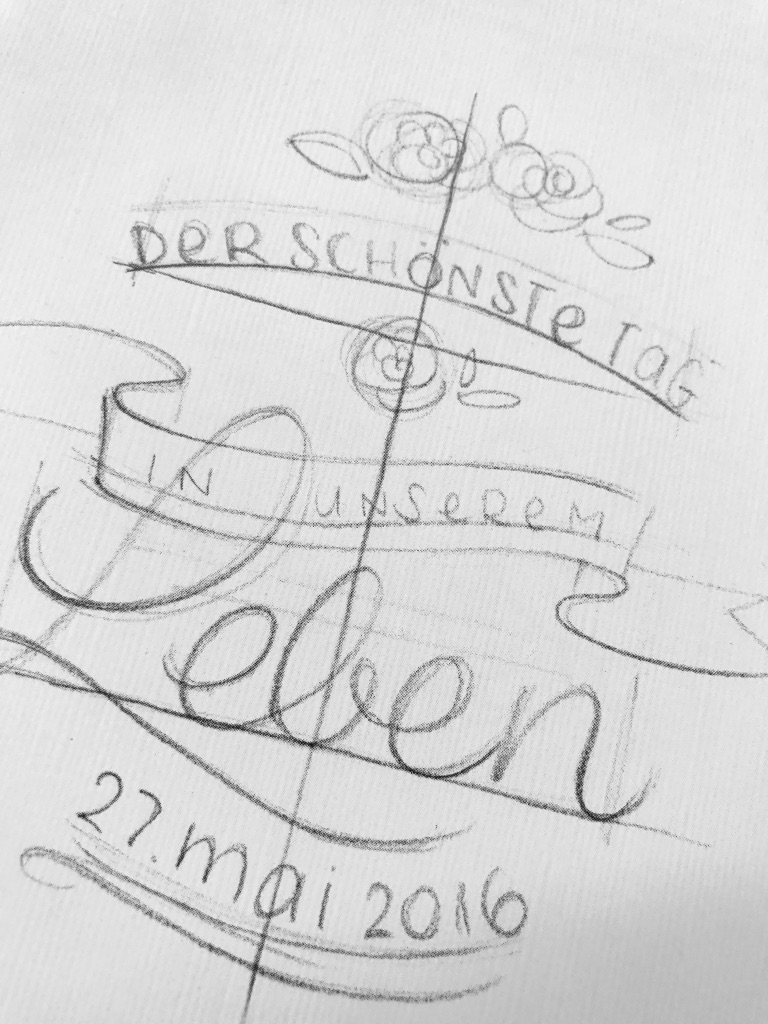 DeR SCHÖNSTe TaG
IN UNSeReM
Leben
27. mai 2016